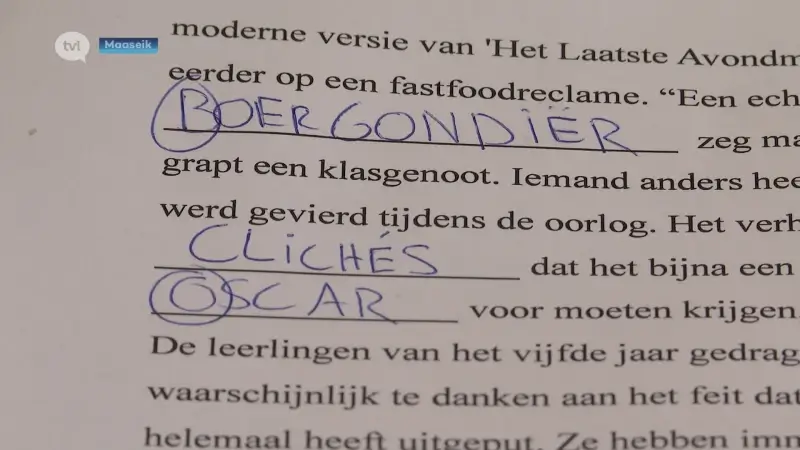 tvl Maaseik
moderne versie van 'Het Laatste Avondm
eerder op een fastfoodreclame. “Een ech
BOERGONDIËR zeg ma
grapt een klasgenoot. Iemand anders hee
werd gevierd tijdens de oorlog. Het verh
CLICHÉS dat het bijna een
OSCAR voor moeten krijgen
De leerlingen van het vijfde jaar gedrag
waarschijnlijk te danken aan het feit dat
helemaal heeft uitgeput. Ze hebben imm